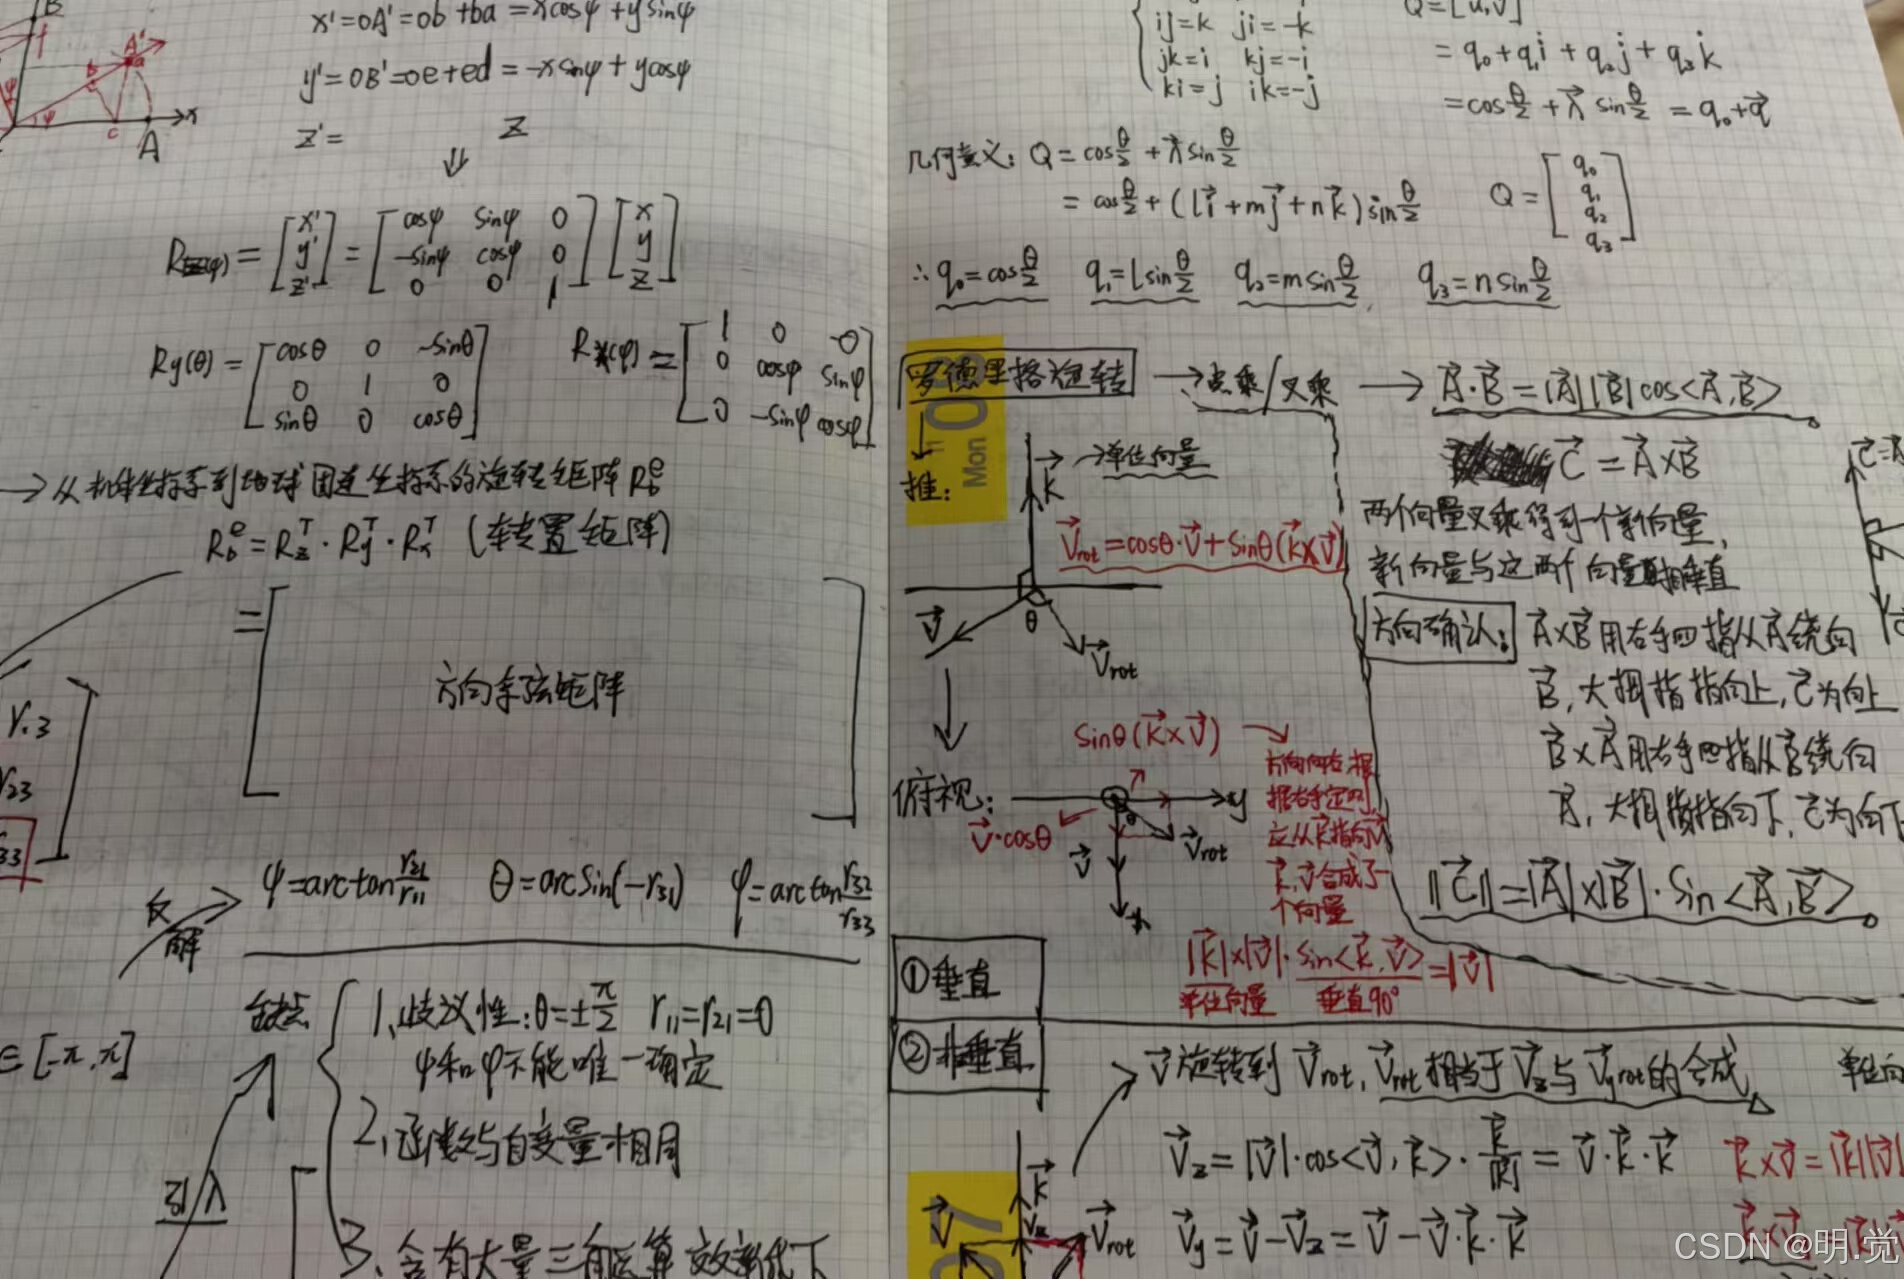 x'=OA'=ob+ba=xcosψ+ysinψ
y'=OB'=oe+ed=-xsinψ+ycosψ
z'= z
⇓
B
f
A'
b
a
ψ
c
A
x
R (ψ) = [x' y' z'] = [cosψ sinψ 0
-sinψ cosψ 0
0 0 1] [x y z]
Ry(θ) = [cosθ 0 -sinθ
0 1 0
sinθ 0 cosθ]
Rx(φ) = [1 0 0
0 cosφ sinφ
0 -sinφ cosφ]
→从机体坐标系到地球固连坐标系的旋转矩阵 R_b^e
R_b^e = R_z^T · R_y^T · R_x^T (转置矩阵)
= [方向余弦矩阵]
r.3
r23
r33
反解
ψ=arctan r21/r11 θ=arcsin(-r31) φ=arctan r32/r33
缺点
1、歧议性:θ=±π/2 r11=r21=0
ψ和φ不能唯一确定
∈[-π,π]
2、函数与自变量相同
引入
3、含有大量三角运算效率低下
ij=k ji=-k
jk=i kj=-i
ki=j ik=-j
Q=[u,v]
=q0+q1i+q2j+q3k
=cosθ/2+λ⃗ sinθ/2=q0+q⃗
几何意义: Q=cosθ/2+λ⃗sinθ/2
=cosθ/2+(li⃗+mj⃗+nk⃗)sinθ/2
Q=[q0 q1 q2 q3]
∴q0=cosθ/2 q1=lsinθ/2 q2=msinθ/2 q3=nsinθ/2
罗德里格旋转 →点乘/叉乘 → A⃗·B⃗=|A⃗||B⃗|cos<A⃗,B⃗>
Mon
推:
k⃗ →单位向量
V⃗rot=cosθ·V⃗+sinθ(k⃗×V⃗)
V⃗
θ
V⃗rot
C⃗=A⃗×B⃗
两个向量叉乘得到一个新向量,
新向量与这两个向量相垂直
方向确认: A⃗×B⃗用右手四指从A⃗绕向
B⃗,大拇指指向上,C⃗为向上
B⃗×A⃗用右手四指从B⃗绕向
A⃗,大拇指指向下,C⃗为向下
||C⃗||=|A⃗|×|B⃗|·sin<A⃗,B⃗>
sinθ(k⃗×V⃗) →
方向向右,根
据右手定则,
应从k⃗指向V⃗
k⃗,V⃗合成了一
个向量
俯视:
y
V⃗·cosθ
θ
V⃗
V⃗rot
x
|k⃗|×|V⃗|·sin<k⃗,V⃗>=|V⃗|
单位向量 垂直90°
①垂直
②非垂直
V⃗旋转到V⃗rot,V⃗rot相当于V⃗z与V⃗yrot的合成
单位向
V⃗z=|V⃗|·cos<V⃗,k⃗>·k⃗/|k⃗|=V⃗·k⃗·k⃗
k⃗×V⃗=|k⃗||V⃗|
V⃗y=V⃗-V⃗z=V⃗-V⃗·k⃗·k⃗
k⃗
V⃗
Vz
V⃗rot
07
CSDN @明.觉